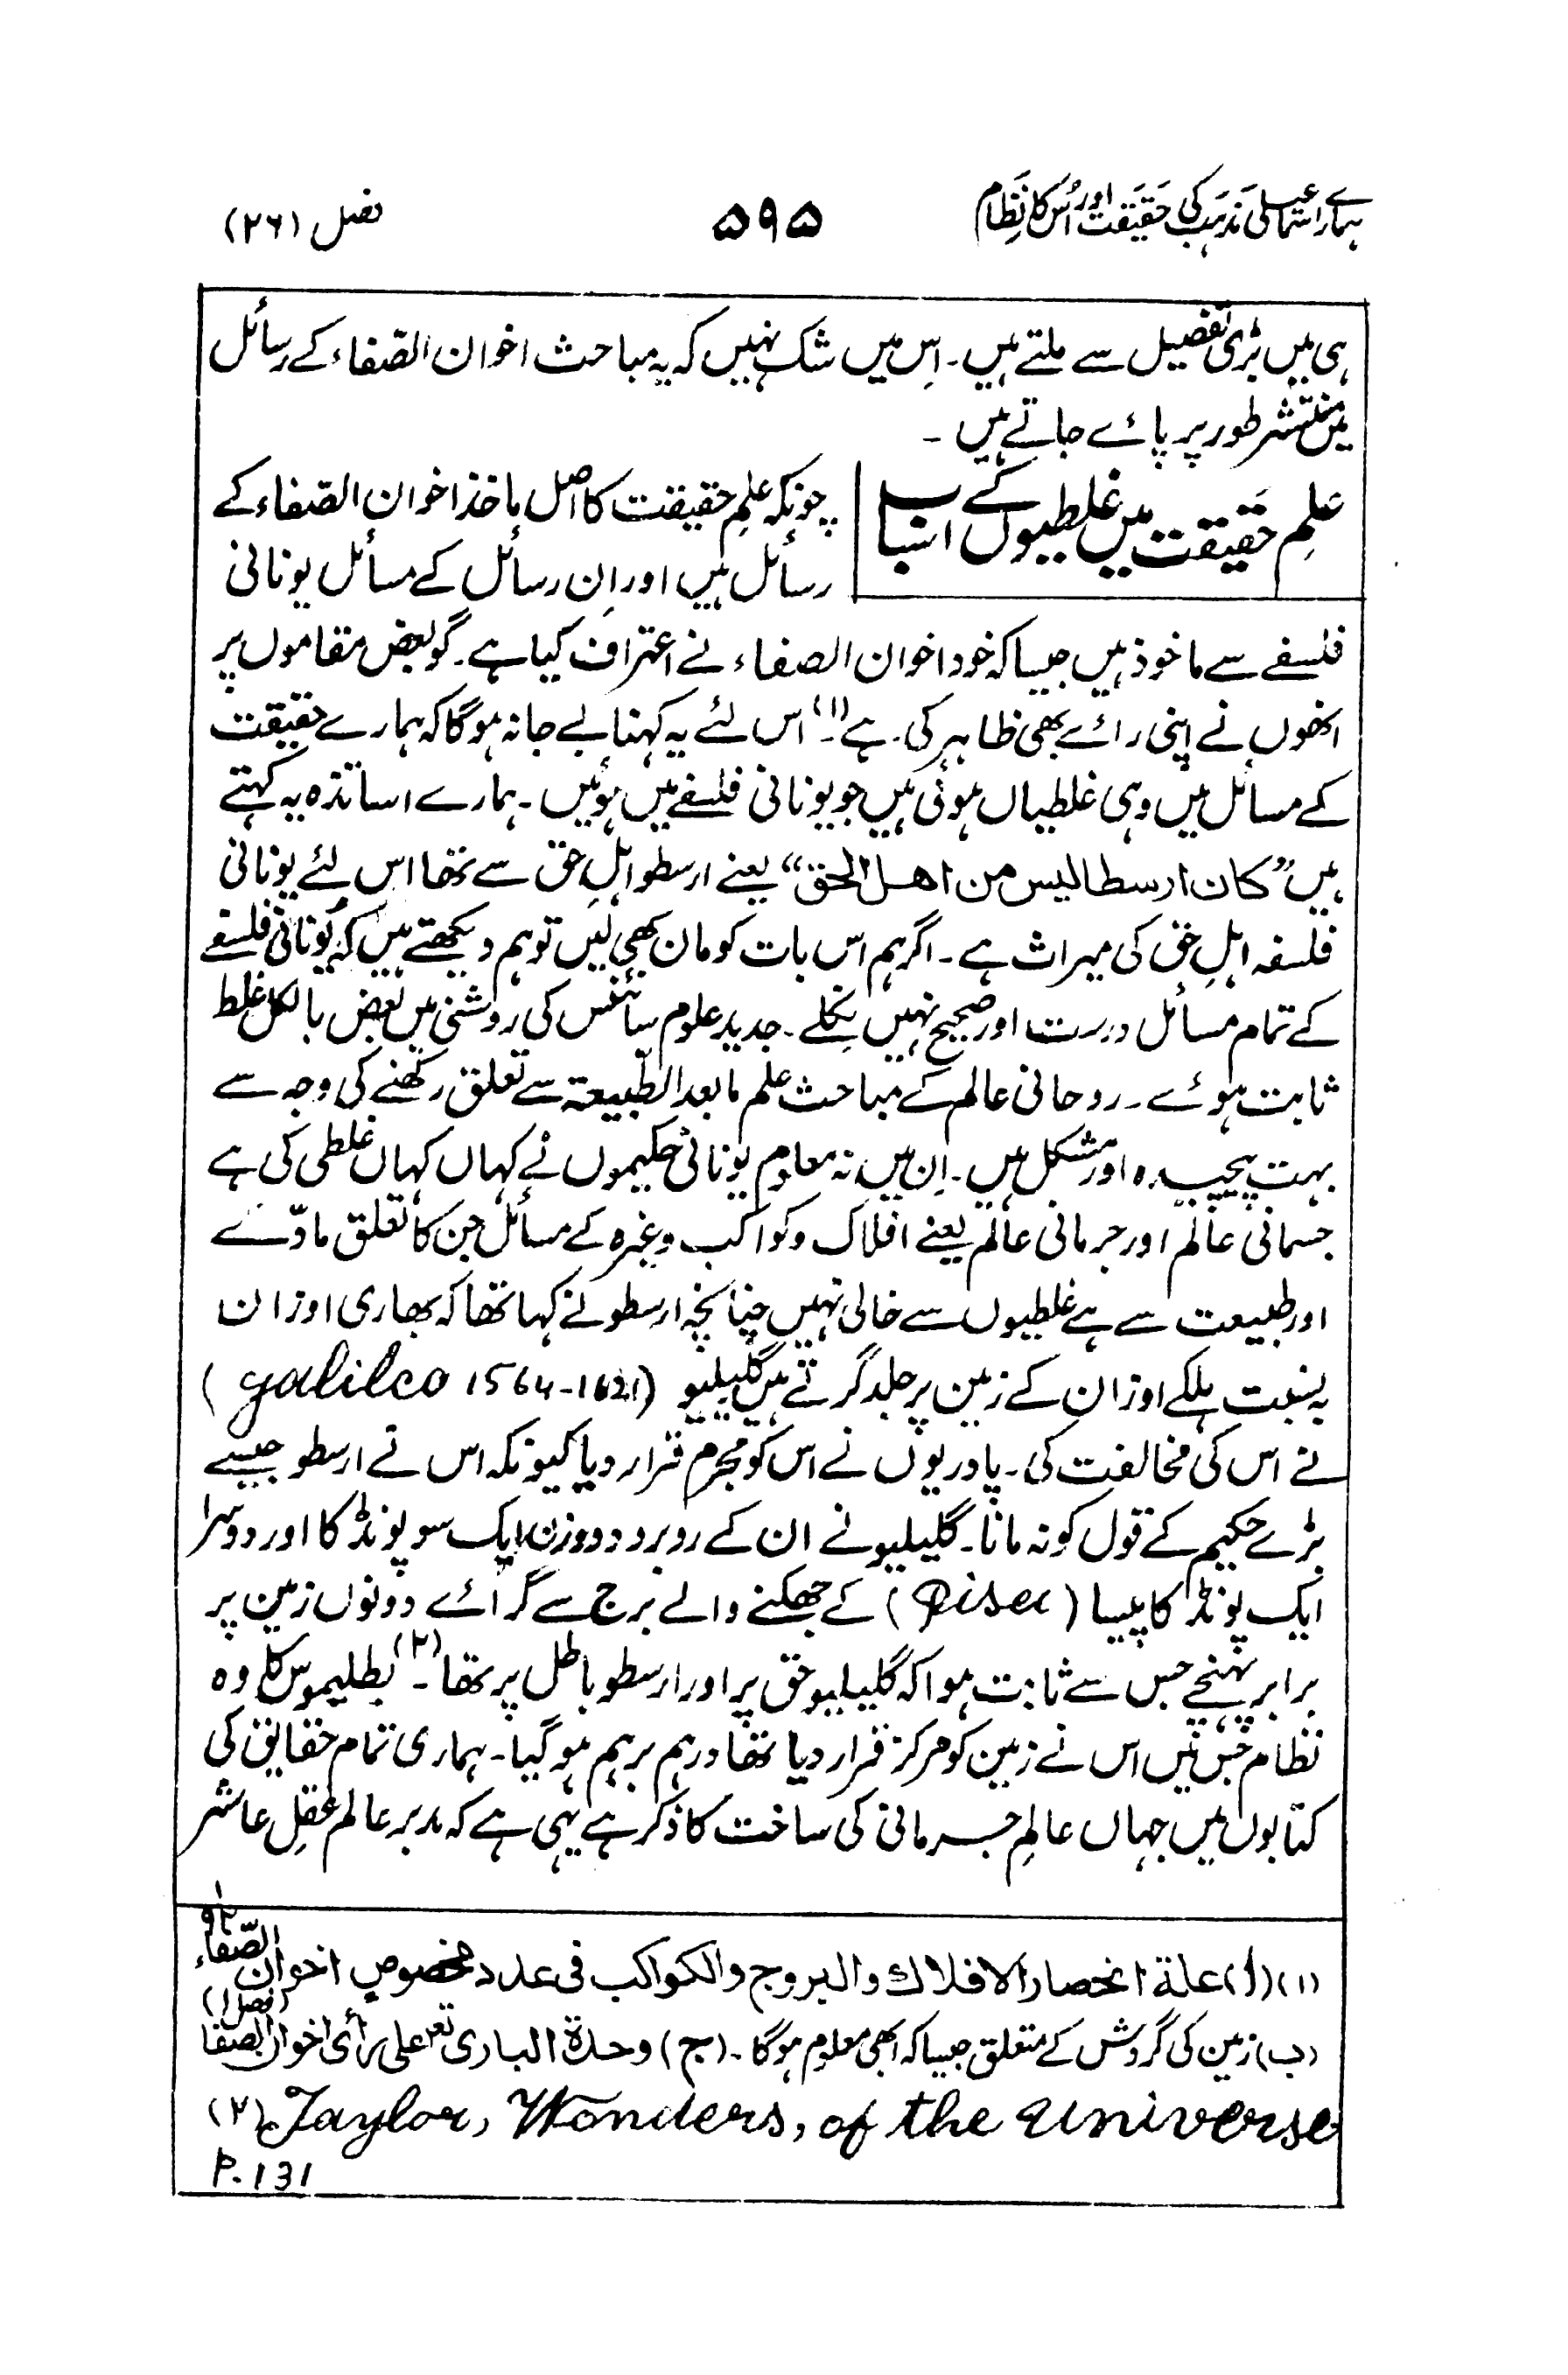 ہمارے اسماعیلی مذہب کی حقیقت اور اُس کا نظام
۵۹۵
فصل (۲۶)
ہی میں بڑی تفصیل سے ملتے ہیں۔ اِس میں شک نہیں کہ یہ مباحث اخوان الصّفاء کے رسائل
میں منتشر طور پر پائے جاتے ہیں ۔
علِم حقیقت میں غلطیوں کے اسباب
چونکہ علمِ حقیقت کا اصل ماخذ اخوان الصّفاء کے
رسائل ہیں اور اِن رسائل کے مسائل یونانی
فلسفے سے ماخوذ ہیں جیسا کہ خود اخوان الصفاء نے اعتراف کیا ہے۔ گو بعض مقاموں پر
انھوں نے اپنی رائے بھی ظاہر کی ہے۔(۱) اس لئے یہ کہنا بے جا نہ ہو گا کہ ہمارے حقیقت
کے مسائل میں وہی غلطیاں ہوئی ہیں جو یونانی فلسفے میں ہوئیں۔ ہمارے اساتذہ یہ کہتے
ہیں ”کان ارسطالیس من اھل الحق“ یعنے ارسطو اہلِ حق سے تھا اس لئے یونانی
فلسفہ اہلِ حق کی میراث ہے۔ اگر ہم اس بات کو مان بھی لیں تو ہم دیکھتے ہیں کہ یونانی فلسفے
کے تمام مسائل درست اور صحیح نہیں نکلے۔ جدید علوم سائنس کی روشنی میں بعض بالکل غلط
ثابت ہوئے۔ روحانی عالم کے مباحث علم مابعد الطّبیعۃ سے تعلق رکھنے کی وجہ سے
بہت پیچیدہ اور مشکل ہیں۔ اِن میں نہ معلوم یونانی حکیموں نے کہاں کہاں غلطی کی ہے
جسمانی عالم اور جرمانی عالم یعنے افلاک و کواکب وغیرہ کے مسائل جن کا تعلق مادّے
اور طبیعت سے ہے غلطیوں سے خالی نہیں چنانچہ ارسطو نے کہا تھا کہ بھاری اوزان
بہ نسبت ہلکے اوزان کے زمین پر جلد گرتے ہیں گلیلیو (galileo 1564-1621)
نے اس کی مخالفت کی۔ پادریوں نے اس کو مجرم قرار دیا کیونکہ اس نے ارسطو جیسے
بڑے حکیم کے قول کو نہ مانا۔ گلیلیو نے ان کے روبرو دو وزن ایک سو پونڈ کا اور دوسرا
ایک پونڈ کا پیسا (Pisa) کے جھکنے والے برج سے گرائے دونوں زمین پر
برابر پہنچے جس سے ثابت ہوا کہ گلیلیو حق پر اور ارسطو باطل پر تھا۔(۲) بطلیموس کا وہ
نظام جس میں اس نے زمین کو مرکز قرار دیا تھا درہم برہم ہو گیا۔ ہماری تمام حقایق کی
کتابوں میں جہاں عالمِ جرمانی کی ساخت کا ذکر ہے یہی ہے کہ مدبر عالم عقلِ عاشر
(۱) (ا) علۃ انحصار الافلاك والبروج والکواکب فی عدد مخصوص اخوان الصّفاء
(ب) زمین کی گردش کے متعلق جیسا کہ ابھی معلوم ہوگا۔ (ج) وحدۃ الباری تع علی رأی اخوان الصفا (فصل ۱)
(۲) Taylor, Wonders, of the Universe
P. 131